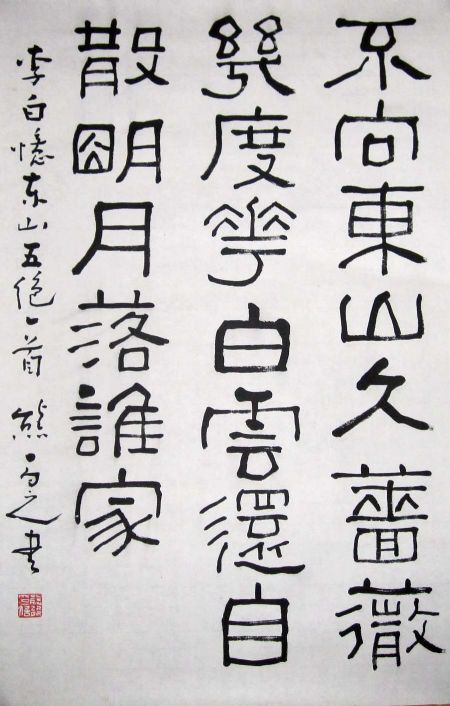 不向東山久薔薇
幾度華白雲還自
散明月落誰家
李白憶东山五绝一首 熊百之书